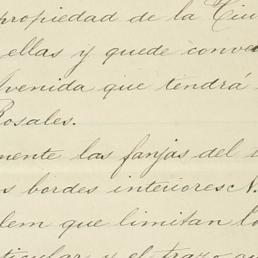 propiedad de la Ciu
ellas y quede conve
venida que tendrá
Rosales.
mente las fanjas del
s bordes interiores N.
lem que limitan lo
ticular y el trazo